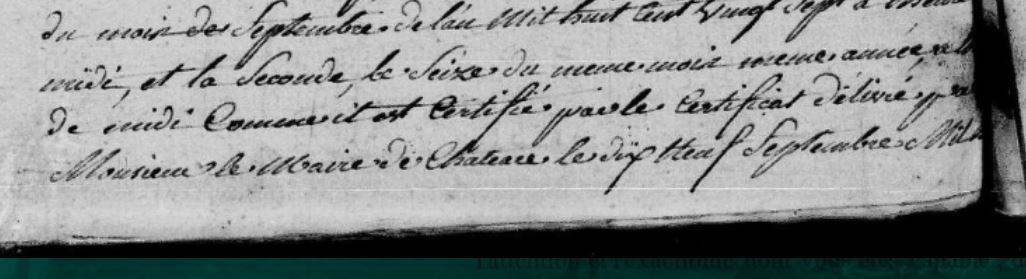 du mois de Septembre de l'an Mil huit Cent Vingt Sept à
midi, et la Seconde, le Seize du meme mois meme année,
de midi Comme il est Certifié par le Certificat délivré par
Monsieur le Maire de Chateau le dix Neuf Septembre Mil